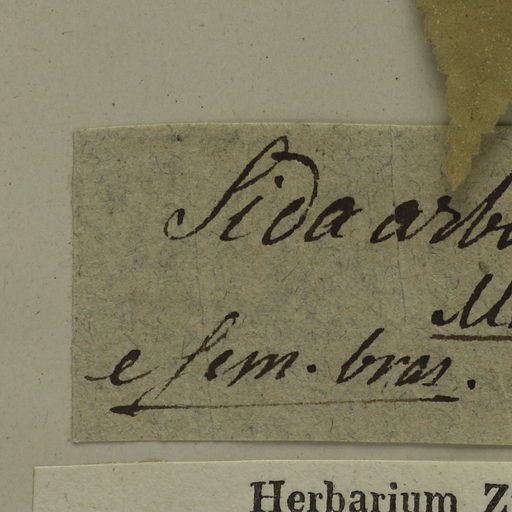 Sida arbo
M
e sem. bras.
Herbarium Z